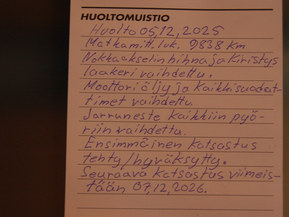 HUOLTOMUISTIO
Huolto 05,12,2025
Matkamitt.luk. 9838 km
Nokkaakselin hihna ja kiristys
laakeri vaihdettu.
Moottoriöljy ja kaikki suodat
timet vaihdettu
Jarruneste kaikkiin pyö-
riin vaihdettu.
Ensimmäinen katsastus
tehty/hyväksytty.
Seuraava katsastus viimeis-
tään 07,12,2026.